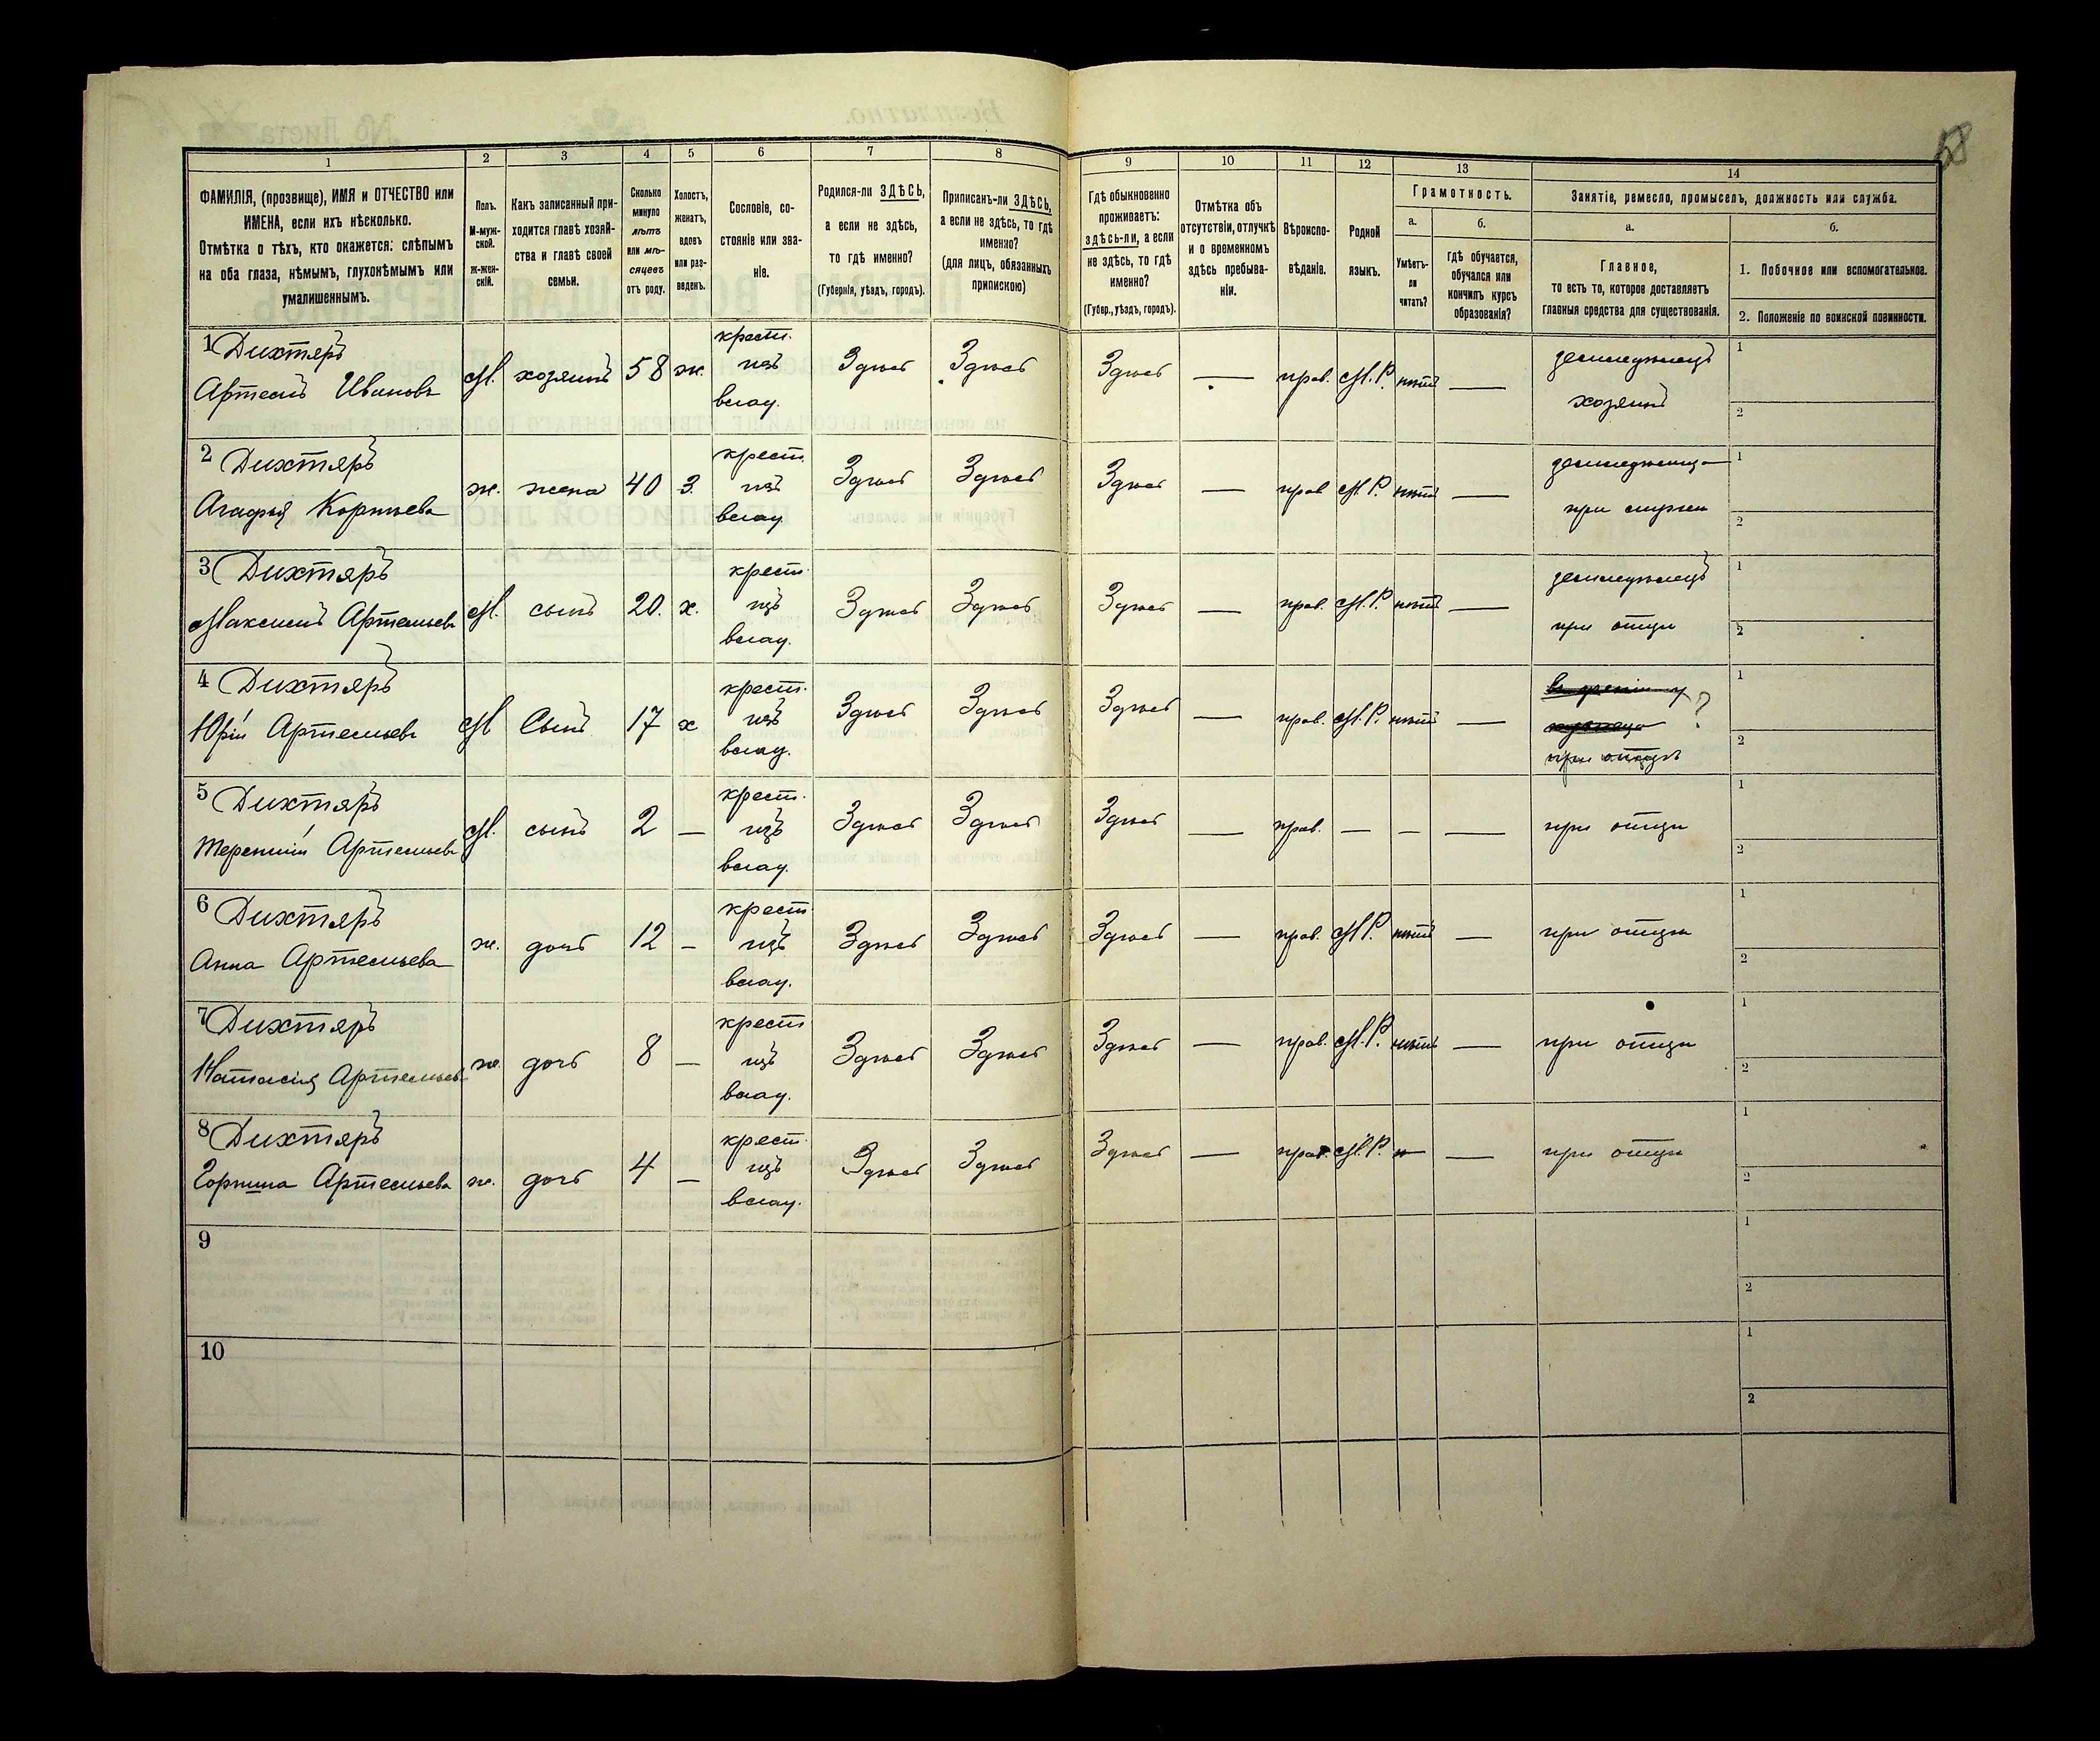 58
1 2 3 4 5 6 7 8 9 10 11 12 13 14
ФАМИЛІЯ, (прозвище), ИМЯ и ОТЧЕСТВО или
ИМЕНА, если ихъ нѣсколько.
Отмѣтка о тѣхъ, кто окажется: слѣпымъ
на оба глаза, нѣмымъ, глухонѣмымъ или
умалишеннымъ.
Полъ.
М-муж-
ской.
Ж-жен-
скій.
Какъ записанный при-
ходится главѣ хозяй-
ства и главѣ своей
семьи.
Сколько
минуло
лѣтъ
или мѣ-
сяцевъ
отъ роду.
Холостъ,
женатъ,
вдовъ
или раз-
веденъ.
Сословіе, со-
стояніе или зва-
ніе.
Родился-ли ЗДѢСЬ,
а если не здѣсь,
то гдѣ именно?
(Губернія, уѣздъ, городъ).
Приписанъ-ли ЗДѢСЬ,
а если не здѣсь, то гдѣ
именно?
(для лицъ, обязанныхъ
припискою)
Гдѣ обыкновенно
проживаетъ:
здѣсь-ли, а если
не здѣсь, то гдѣ
именно?
(Губер., уѣздъ, городъ).
Отмѣтка объ
отсутствіи, отлучкѣ
и о временномъ
здѣсь пребыва-
ніи.
Вѣроиспо-
вѣданіе.
Родной
языкъ.
Грамотность.
а.
Умѣетъ-
ли
читать?
б.
Гдѣ обучается,
обучался или
кончилъ курсъ
образованія?
Занятіе, ремесло, промыселъ, должность или служба.
а.
Главное,
то есть то, которое доставляетъ
главныя средства для существованія.
б.
1. Побочное или вспомогательное.
2. Положеніе по воинской повинности.
1 Дихтяръ
Артемъ Ивановъ М. хозяинъ 58 ж. крест. изъ влад. Здѣсь Здѣсь Здѣсь — прав. М.Р. нѣтъ — земледѣлецъ хозяинъ 1 2
2 Дихтяръ
Агафія Корнѣева ж. жена 40 З. крест. изъ влад. Здѣсь Здѣсь Здѣсь — прав М.Р. нѣтъ — при мужѣ 1 2
3 Дихтяръ
Максимъ Артемьевъ М. сынъ 20. х. крест. изъ влад. Здѣсь Здѣсь Здѣсь — прав. М.Р. нѣтъ — земледѣлецъ при отцѣ 1 2
4 Дихтяръ
Юрій Артемьевъ М Сынъ 17 х крест. изъ влад. Здѣсь Здѣсь Здѣсь — прав. М.Р. нѣтъ — ? при отцѣ 1 2
5 Дихтяръ
Терентій Артемьевъ М. сынъ 2 — крест. изъ влад. Здѣсь Здѣсь Здѣсь — прав. — — — при отцѣ 1 2
6 Дихтяръ
Анна Артемьева ж. дочь 12 — крест. изъ влад. Здѣсь Здѣсь Здѣсь — прав. М.Р. нѣтъ — при отцѣ 1 2
7 Дихтяръ
Натасія Артемьева ж. дочь 8 — крест изъ влад. Здѣсь Здѣсь Здѣсь — прав. М.Р. нѣтъ — при отцѣ 1 2
8 Дихтяръ
Горпина Артемьева ж. дочь 4 — крест. изъ влад. Здѣсь Здѣсь Здѣсь — прав. М.Р. н — при отцѣ 1 2
9 1 2
10 1 2